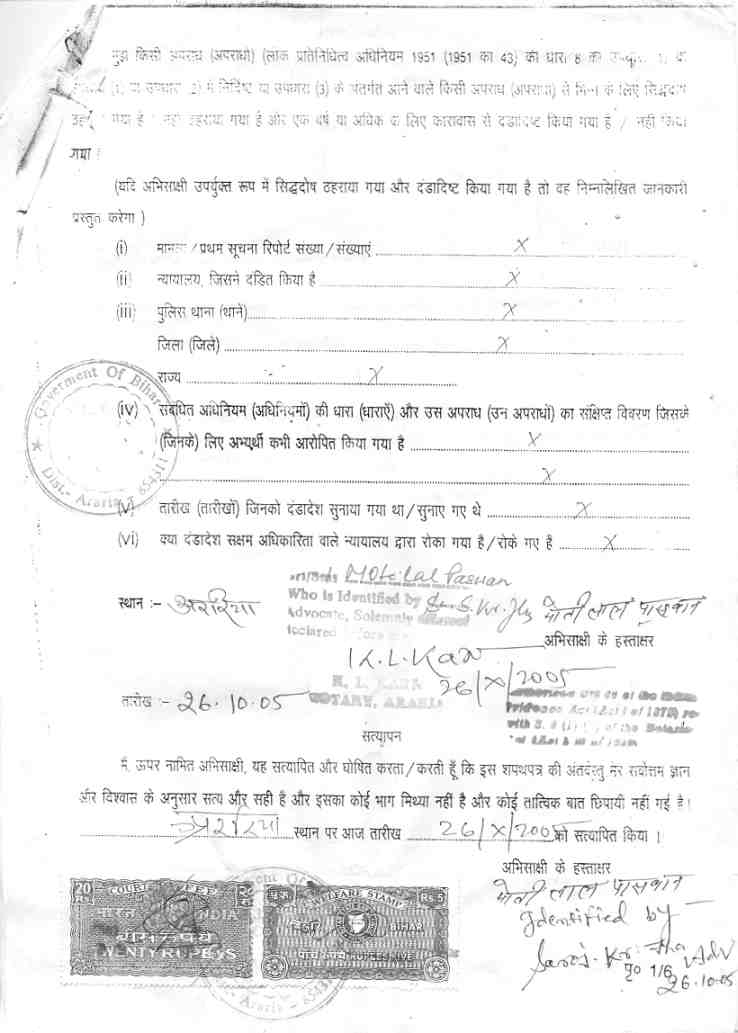 मुझे किसी अपराध (अपराधों) (लोक प्रतिनिधित्व अधिनियम 1951 (1951 का 43) की धारा 8 की
या उपधारा (2) में निर्दिष्ट या उपधारा (3) के अंतर्गत आने वाले किसी अपराध (अपराधों) से भिन्न के लिए सिद्धदोष
गया है / नहीं ठहराया गया है और एक वर्ष या अधिक के लिए कारावास से दंडादिष्ट किया गया है / नहीं किया
गया
(यदि अभिसाक्षी उपर्युक्त रूप में सिद्धदोष ठहराया गया और दंडादिष्ट किया गया है तो वह निम्नलिखित जानकारी
प्रस्तुत करेगा )
(i) मामला / प्रथम सूचना रिपोर्ट संख्या / संख्याएं X
(ii) न्यायालय, जिसने दंडित किया है X
(iii) पुलिस थाना (थानें) X
जिला (जिले) X
राज्य X
Goverment Of Bihar
Dist.- Araria - 854311
(iv) संबंधित अधिनियम (अधिनियमों) की धारा (धाराऐं) और उस अपराध (उन अपराधों) का संक्षिप्त विवरण जिसके
(जिनके) लिए अभ्यर्थी कभी आरोपित किया गया है X
X
(v) तारीख (तारीखों) जिनको दंडादेश सुनाया गया था / सुनाए गए थे X
(vi) क्या दंडादेश सक्षम अधिकारिता वाले न्यायालय द्वारा रोका गया है / रोके गए है X
Motilal Paswan
Who is Identified by S. Kr. Jha
Advocate, Solemnly affirmed
declared before me
स्थान :- अररिया
मोती लाल पासवान
अभिसाक्षी के हस्ताक्षर
K.L. Karn
26/X/2005
K. L. KARN
NOTARY, ARARIA
तारीख :- 26.10.05
सत्यापन
मैं, ऊपर नामित अभिसाक्षी, यह सत्यापित और घोषित करता / करती हूँ कि इस शपथपत्र की अंतर्वस्तु मेरे सर्वोत्तम ज्ञान
और विश्वास के अनुसार सत्य और सही है और इसका कोई भाग मिथ्या नहीं है और कोई तात्विक बात छिपायी नहीं गई है।
अररिया स्थान पर आज तारीख 26/X/2005 को सत्यापित किया ।
अभिसाक्षी के हस्ताक्षर
मोती लाल पासवान
Identified by
Saroj. Kr. Jha Adv
पृ0 1/6
26.10.05
20 RS. COURT FEE
भारत INDIA
बीस रुपये
TWENTY RUPEES
WELFARE STAMP Rs 5
बिहार BIHAR
पांच रुपये RUPEES FIVE
Araria - 854311